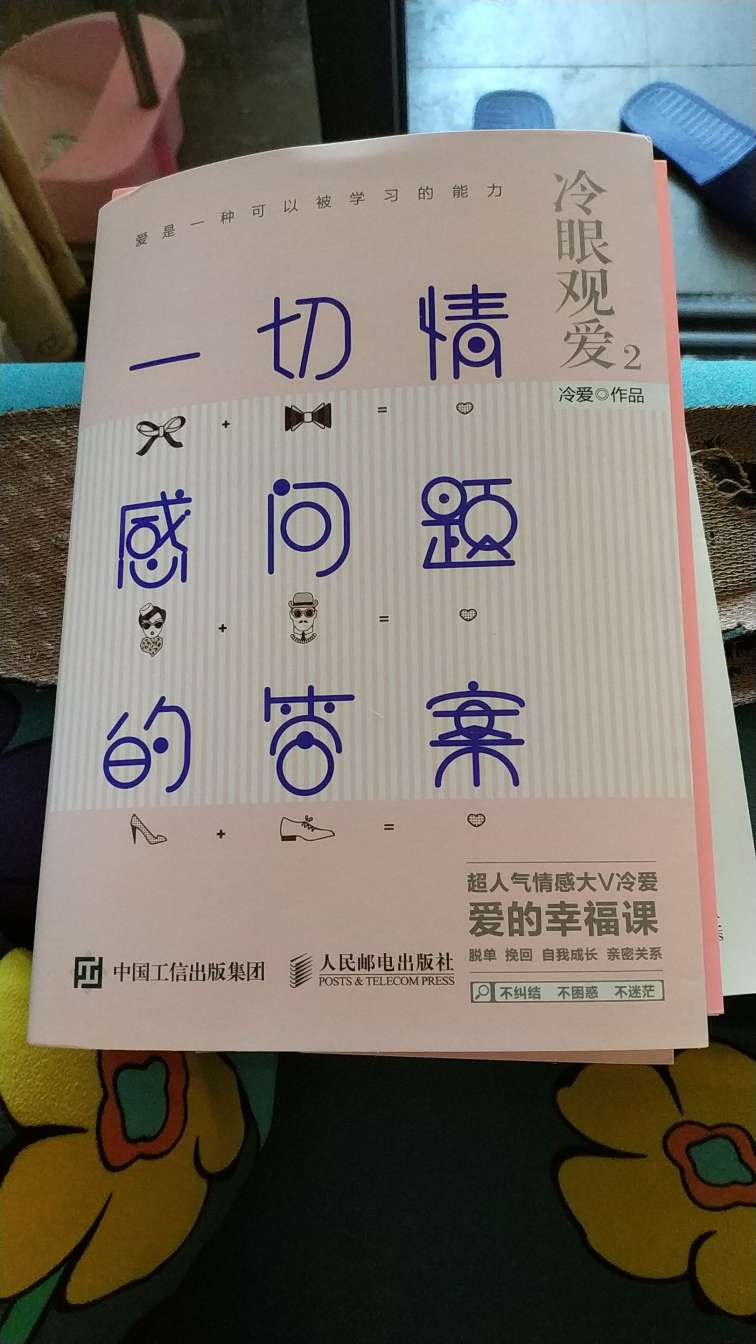 爱是一种可以被学习的能力
冷眼观爱2
冷爱◎作品
一切情
+ =
感问题
+ =
的答案
+ =
超人气情感大V冷爱
爱的幸福课
脱单 挽回 自我成长 亲密关系
不纠结 不困惑 不迷茫
中国工信出版集团
人民邮电出版社
POSTS & TELECOM PRESS